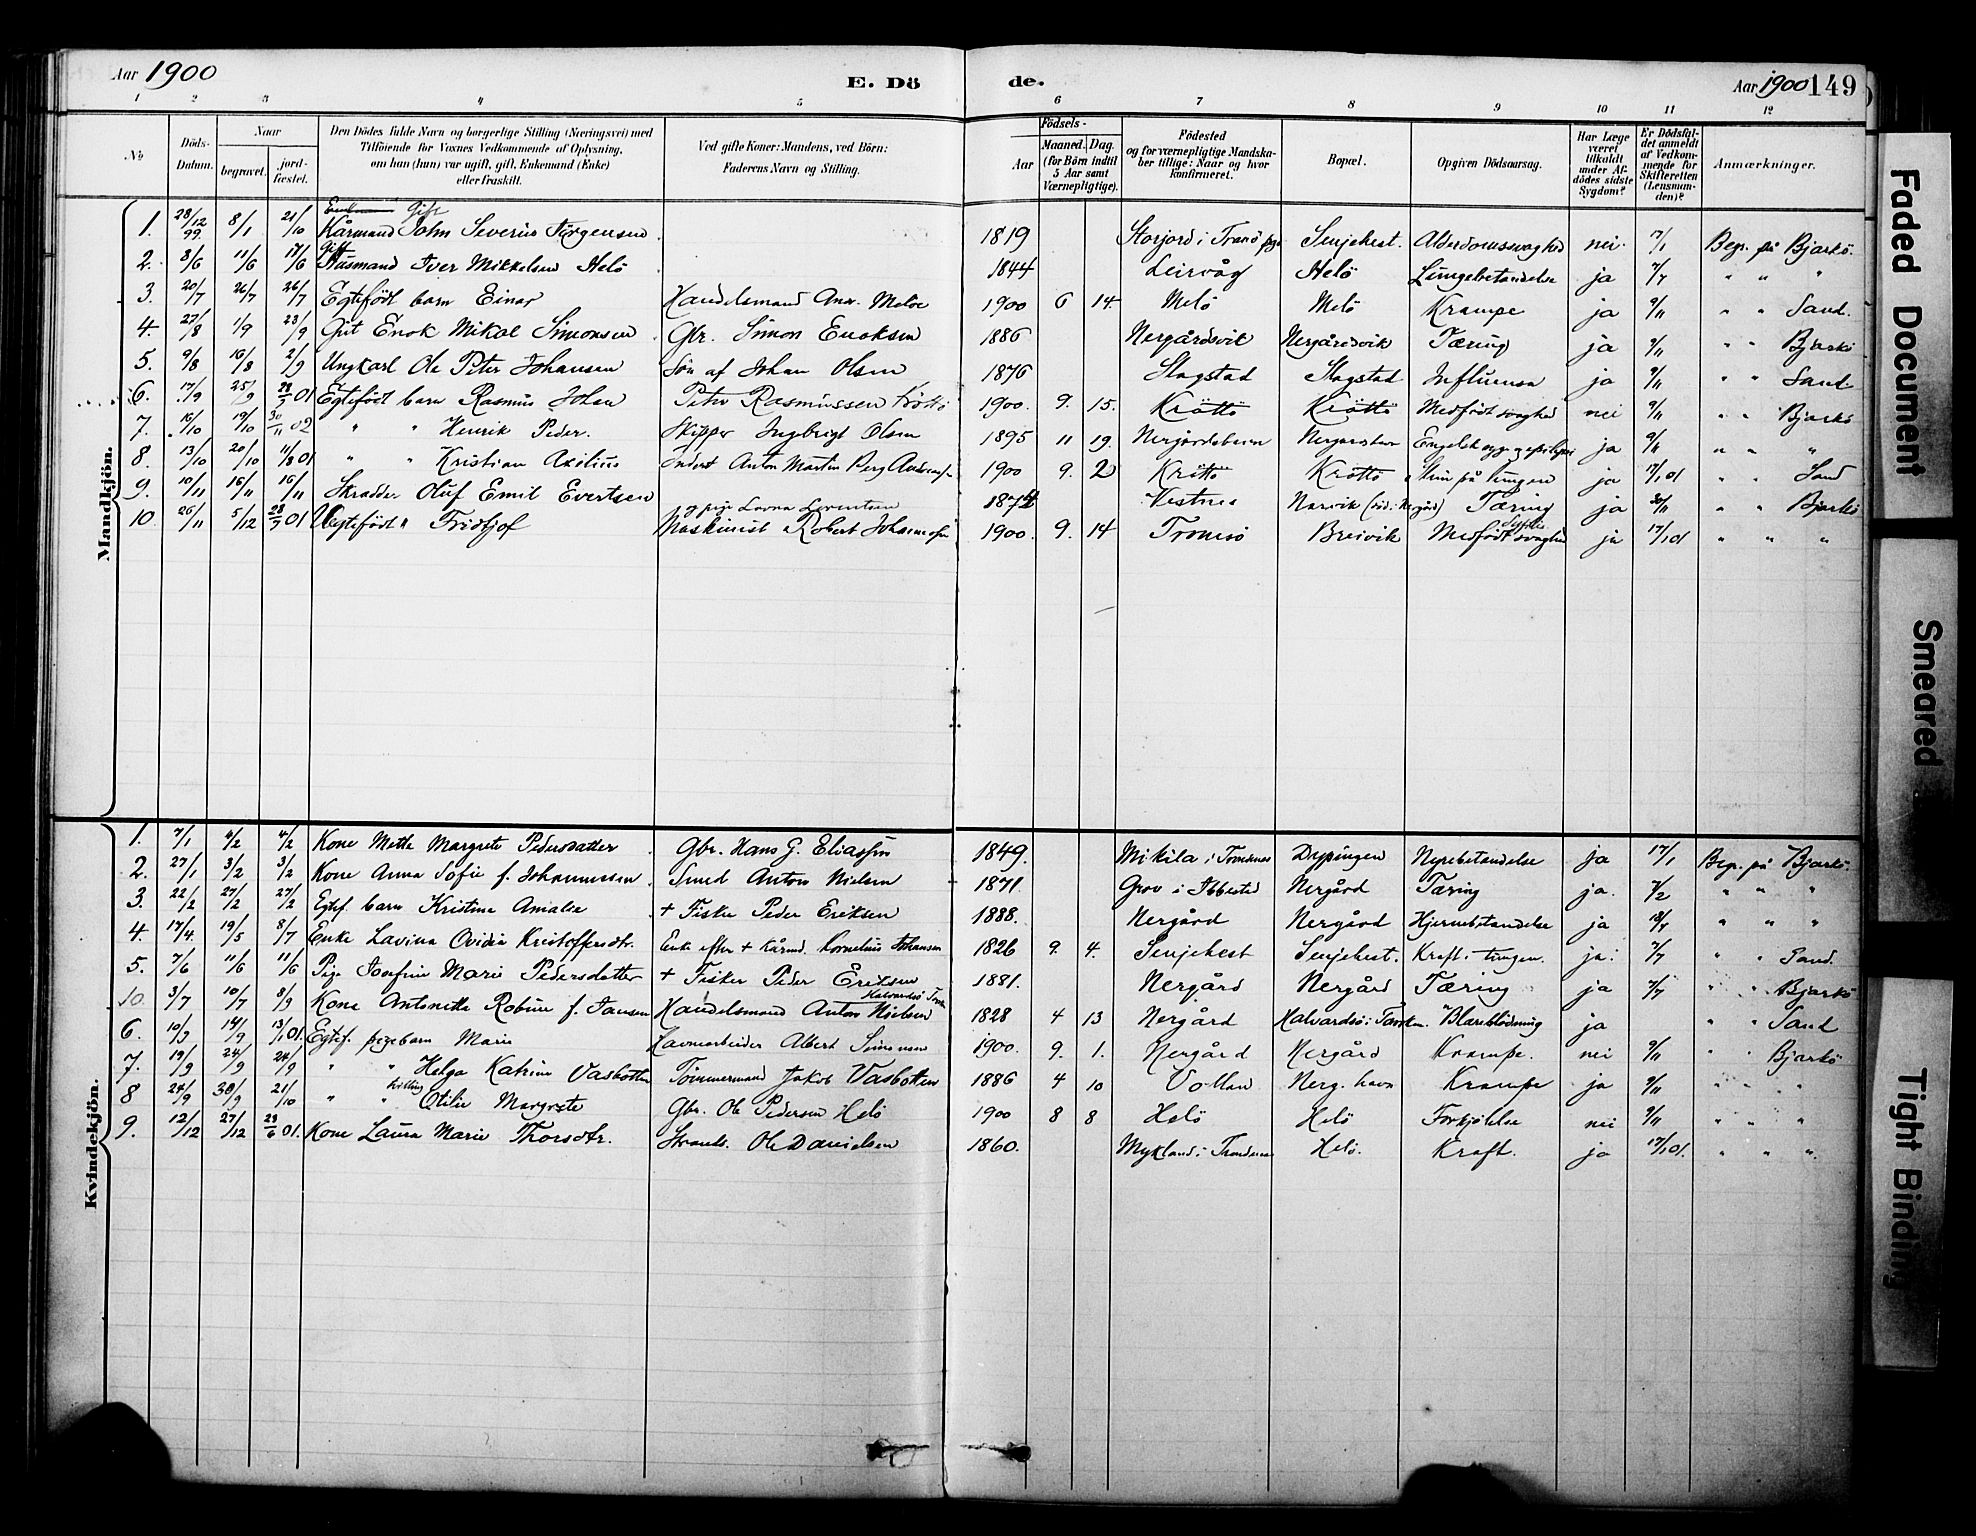 Aar 1900
E. Dö
de.
Aar 1900 149
1 2 3 4 5 6 7 8 9 10 11 12
No
Döds-Datum.
Naar
begravet. jordfæstet.
Den Dödes fulde Navn og borgerlige Stilling (Næringsvei) med
Tilföiende for Voxnes Vedkommende af Oplysning,
om han (hun) var ugift, gift, Enkemand (Enke)
eller fraskilt.
Ved gifte Koner: Mandens, ved Börn:
Faderens Navn og Stilling.
Födsels-
Aar Maaned. Dag.
(for Börn indtil
5 Aar samt
Værnepligtige).
Födested
og for værnepligtige Mandskaber tillige: Naar og hvor
konfirmeret.
Bopæl.
Opgiven Dödsaarsag.
Har Læge
været
tilkaldt
under Afdödes sidste
Sygdom?
Er Dödsfaldet anmeldt
af Vedkommende for
Skifteretten
(Lensmanden)?
Anmærkninger.
Mandkjön.
1. 28/12 99 8/1 21/10 Gift Kårmand John Severin Jörgensen 1819 Storjord i Tranö Senjehest. Alderdomssvaghed nei. 7/1 Begr. på Bjarkö.
2. 3/6 11/6 17/6 Gift Husmand Iver Mikkelsen Helö 1844 Leirvåg Helö Lungebetændelse ja 7/7 " " "
3. 20/7 26/7 26/7 Egtefödt barn Einar Handelsmand And. Meløe 1900 6 14. Melö Melö Krampe ja 9/11 " " Sand.
4. 27/8 1/9 23/9 Gut Enok Mikal Simonsen Gbr. Simon Enoksen 1886 Nergårdsvik Nergårdsvik Tæring ja 9/11 " " Bjarkö
5. 9/8 16/8 2/9 Ungkarl Ole Peter Johansen Sön af Johan Olsen 1876 Slagstad Slagstad Influensa ja 9/11 " " Sand.
6. 17/9 25/9 01 Egtefödt barn Rasmus Johan Peter Rasmussen Kröttö 1900. 9. 15. Kröttö Kröttö Medfödt svaghed nei 9/11 " " Bjarkö
7. 16/10 19/10 30/11 02 " " Henrik Peder. Skipper Ingbrigt Olsen 1895 11 19. ja 9/11 " " "
8. 13/10 20/10 11/8 01 " " Kristian Axelius Inderst Anton Martin Berg 1900 9. 2 Kröttö Kröttö ja 17/1 01 " " Sand
9. 10/11 16/11 16/11 Skrædder Oluf Emil Evertsen 1874 Vestnes Narvik Tæring ja 30/11 " " Bjarkö
10. 26/11 5/12 01 Uegtefödt " Fridtjof Maskinist Robert og pige Lovna Lorentsen 1900. 9. 14 Tromsö Breivik Medfödt svaghed ja 17/1 01 " " "
Kvindekjön.
1. 7/1 4/2 4/2 Kone Mette Margrete Pedersdatter Gbr. Hans G. Eliassen 1849. Mikila i Trondenes Dyping​en Nyrebetændelse ja 17/1 Begr. på Bjarkö.
2. 27/1 3/2 3/2 Kone Anna Sofie f. Johannessen. Smed Anton Nielsen 1871. Grov i Ibbestad Nergård Tæring ja. 7/2 " " "
3. 22/2 27/2 27/2 Egtef. barn Kristine Amalie + Fisker Peder Eriksen 1888. Nergård Nergård Hjernebetændelse ja " " "
4. 17/4 19/5 8/7 Enke Lavina Ovidia Kristoffersdtr. Enke efter + Kårmd. Kornelius Johansen 1826 9. 4. Senjehest Senjehest. Kræft i tungen. ja. 7/7 " " Sand.
5. 7/6 11/6 11/6 Pige Josefine Marie Pedersdatter + Fisker Peder Eriksen 1881. Nergård Nergård Tæring ja 7/7 " " Bjarkö
10. 3/7 10/7 8/9 Kone Antonette Robine f. Jansen Handelsmand Anton Nielsen 1828 4 13 Nergård Halvardsö i Blæreblödning ja " " Sand
6. 10/9 14/9 13/1 01. Egtef. pigebarn Marie Havnearbeider Albert Simonsen 1900. 9. 1. Nergård Nergård Krampe. nei 9/11 " " Bjarkö
7. 19/9 24/9 24/9 " " Helga Katrine Vasbotten Tömmermand Jakob Vasbotten 1886 4 10 Volland Nerg. havn Krampe ja 9/11 " " "
8 24/9 30/9 21/10 " " tvilling Otilie Margrete Gbr. Ole Pedersen Helö 1900 8 8 Helö Helö Forkjölelse nei 9/11 " " "
9. 12/12 27/12 01. Kone Laura Marie Thorsdtr. Strands. Ole Danielsen 1860. Mykland i Trondenes Helö. Kræft. ja 17/1 01. " " "
Faded Document
Smeared
Tight Binding